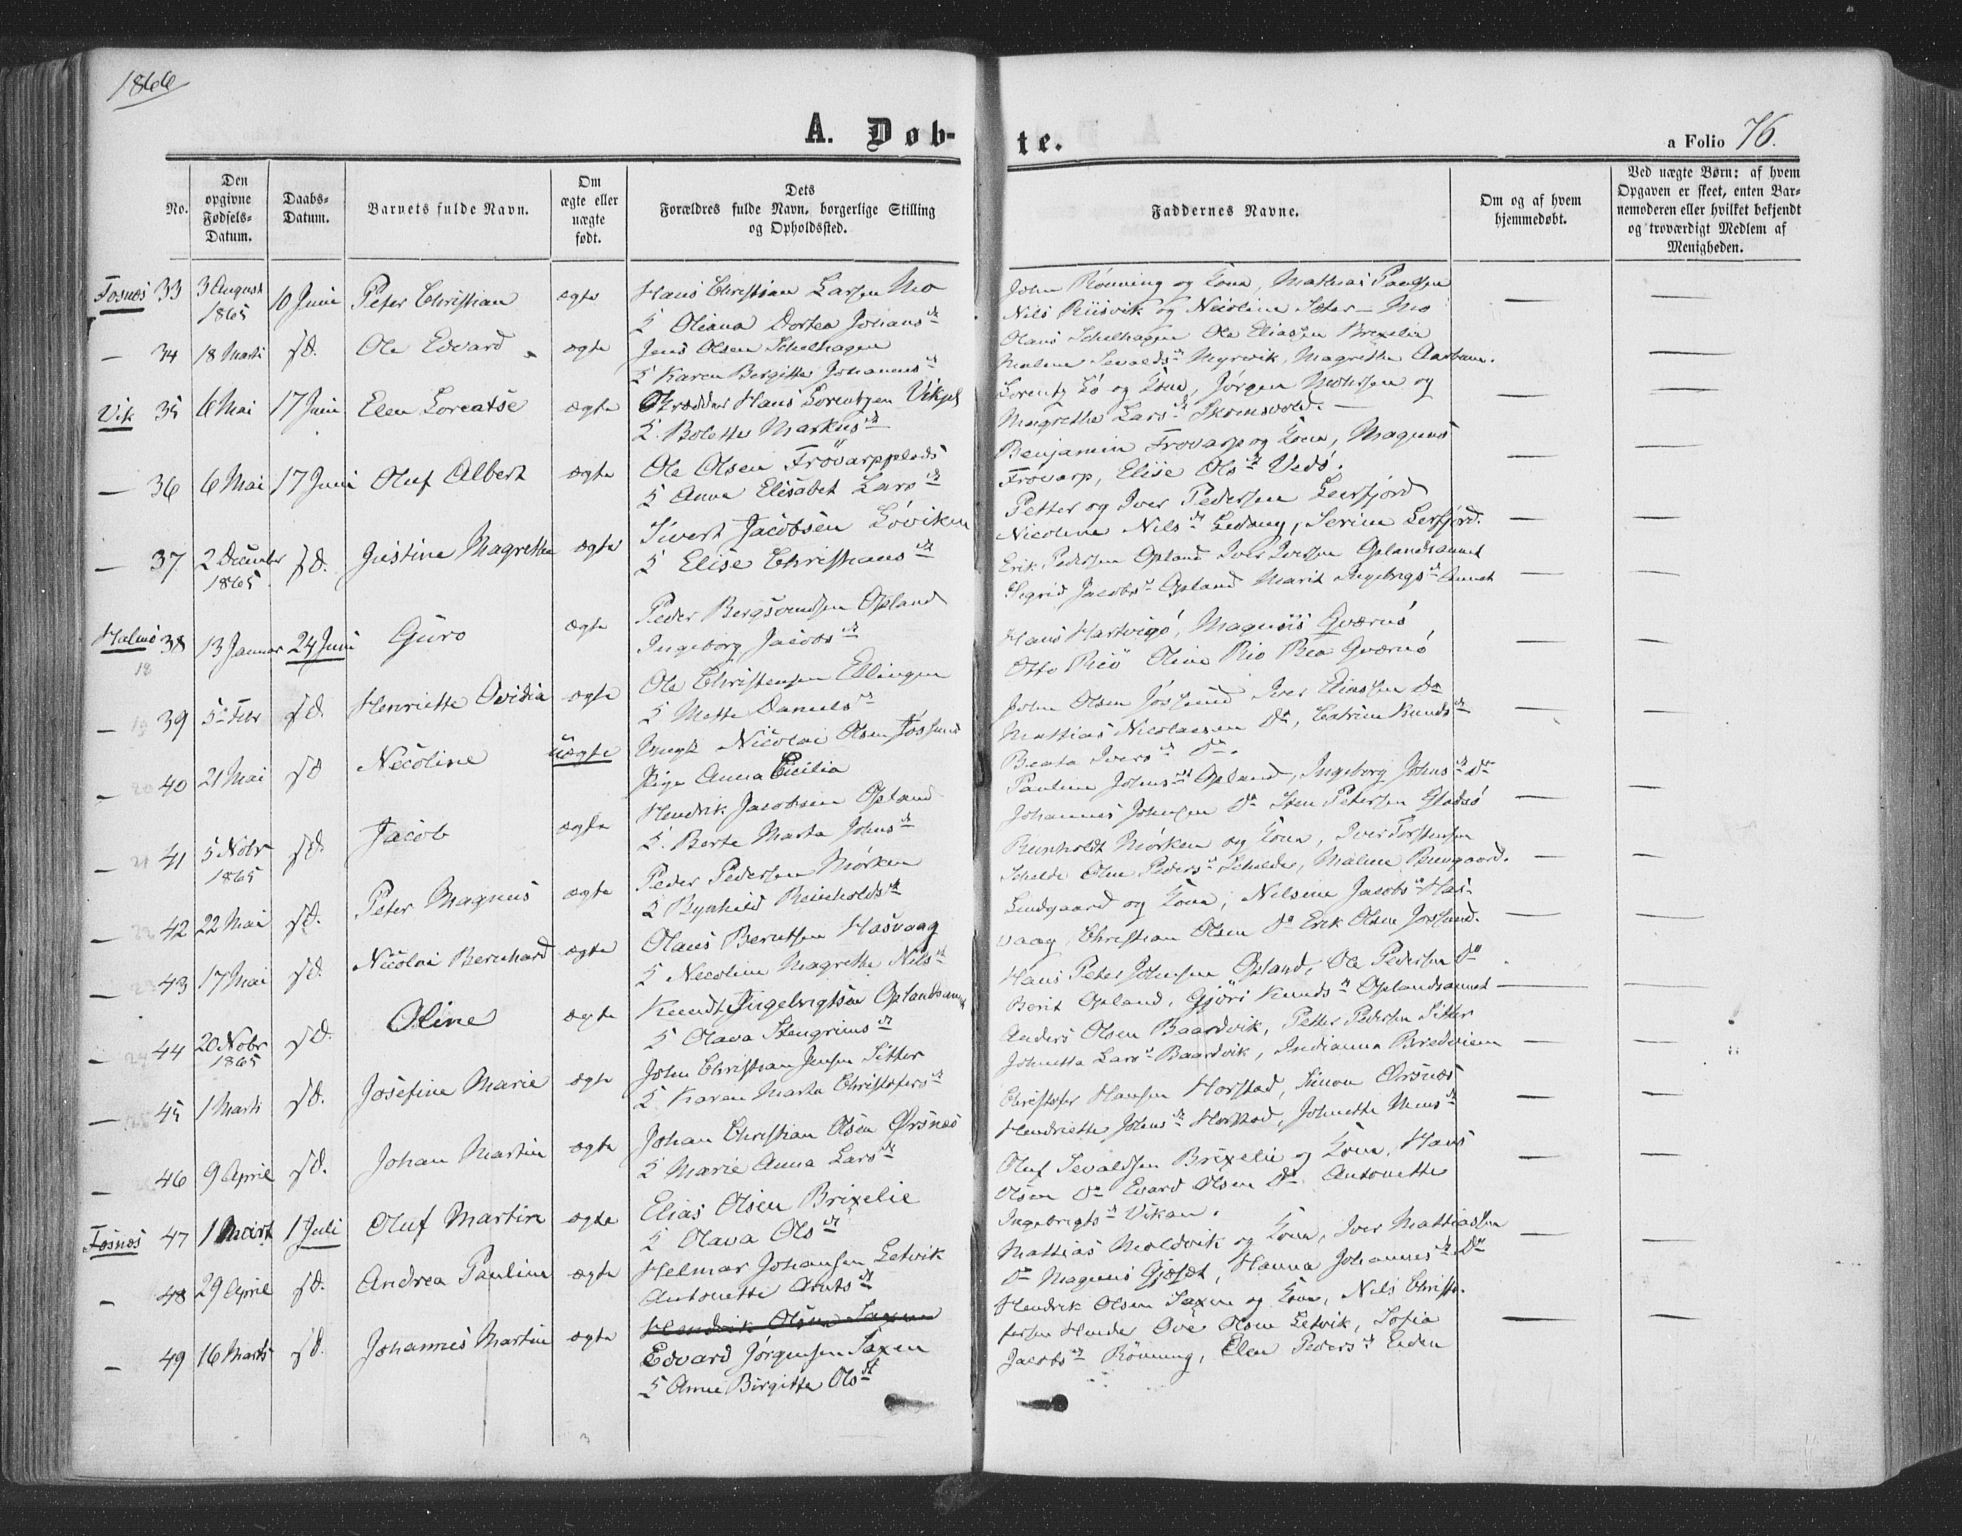 1866
A. Døb-
te.
a Folio 76.
No.
Den opgivne Fødsels-Datum.
Daabs-Datum.
Barnets fulde Navn.
Om ægte eller uægte født.
Dets Forældres fulde Navn, borgerlige Stilling og Opholdssted.
Faddernes Navne.
Om og af hvem hjemmedøbt.
Ved uægte Børn: af hvem Opgaven er skeet, enten Barnemoderen eller hvilket bekjendt og troværdigt Medlem af Menigheden.
Fosnæs 33 3 August 1865 10 Juni Peter Christian ægte Hans Christian Larsen Mo
Oliana Dortea Johansdt
John Rönning og Kona, Mathias Paulsen
Nils Riisvik og Nicoline Sæter - Mo
— 34 18 Marts sD. Ole Edvard ægte Jens Olsen Schelhagen
Karen Bergitte Johannesdt
Olaus Schelhagen Ole Eliassen Brexelie
Malene Sevaldsdt Myrvik, Magrethe
Vik 35 6 Mai 17 Juni Elen Loreatse ægte Hans Lorentzen
Bolette Markusdt
Lorentz og Kona, Jørgen og
Magrethe Larsdt
— 36 6 Mai 17 Juni Oluf Albert ægte Ole Olsen
Anna Elisabet Larsdt
Benjamin Frövarp og Kona, Magnus
Frövarp, Elise Olsdt Vedö.
— 37 2 December 1865 sD. Justine Magrethe ægte Sivert Jacobsen Lövik
Elise Christiansdt
Petter og Iver Pedersen
Nicoline Nilsdt Serine
Halmö 38
18
13 Januar 24 Juni Guro ægte Peder Opland
Ingeborg Jacobsdt
Erik Pedersen Opland Iver Iversen Oplandsaunet
Sigrid Jacobsdt Opland Marit Ingebrigtsdt Aunet
— 19 39 5te Febr sD. Henriette Ovidia ægte Ole Christensen Ellingen
Mette Danielsdt
Hans Hartvigö, Magnus Qværnö
Otto Riö Oline Rio Bea Qværnö
— 20 40 21 Mai sD Nicoline uægte Ungk Nicolai Olsen Jössund
Pige Anna Cicilia
John Olsen Jössund Iver Eliassen Do
Mattias Nicolaisen Do,
Beata Iversdt Do.
— 21 41 5 Nobr 1865 sD. Jacob ægte Hendrik Jacobsen Opland
Berte Marta Johnsdt
Pauline Johnsdt Opland, Ingeborg Johnsdt Do
Johannes Johnsen Do Sten Petersen
— 22 42 22 Mai sD. Peter Magnus ægte Peder Pedersen Mörken
Reinholdsdt
Mörken og Kona, Iver Torstensen
Olen Pedersdt Malene
— 23 43 17 Mai sD. Nicolai Bernhard ægte Olaus Berntsen Hasvaag
Nicoline Magrethe Nilsdt
Lindgaard og Kona, Nilsine Jacobsdt Has-
vaag, Christian Olsen Do Erik Olsen Jössund.
— 24 44 20 Nobr 1865 sD. Oline ægte Knudt Ingebrigtsen Oplandsaunet
Olava Stengrimsdt
Hans Peter Johnsen Opland, Ole Pedersen Do
Berit Opland, Gjöri Knudsdt Oplandsaunet
— 25 45 1 Marts sD. Josefine Marie ægte John Christian Jensen Sitter
Karen Marta Christofersdt
Anders Olsen Baardvik, Petter Pedersen Sitter
Johnetta Larsdt Baardvik, Indianna
— 46 9 April sD. Johan Martin ægte Johan Christian Olsen Ørsnæs
Marie Anna Larsdt
Christofer Hansen Horstad, Simon Ørsnæs
Hendriette Johnsdt Horstad, Johnette
Fosnæs 47 1 Marts 1 Juli Oluf Martin ægte Elias Olsen Brixelie
Olava Olsdt
Oluf Sevaldsen Brixelie og Kona, Hans
Olsen Do Evard Olsen Do Antonette
Ingebrigtsdt Vikan.
— 48 29 April sD. Andrea Pauline ægte Helmar Johansen Setvik
Antonette Arntsdt
Mattias Moldvik og Kona, Iver Mattiassen
Do Magnus Hanna Johannesdt Do
— 49 16 Marts sD. Johannes Martin ægte Hendrik Olsen Saxen
Edvard Jørgensen Saxen
Anne Birgitte Olsdt
Hendrik Olsen Saxen og Kona, Nils Christo-
fersen Ove Olsen Setvik, Sofia
Jacobsdt Rönning, Elen Pedersdt Eiden